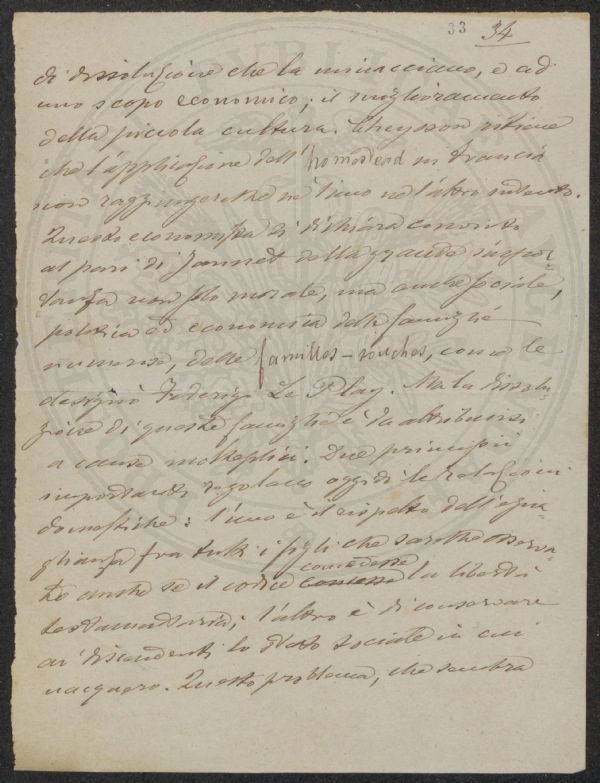 33 34
di dissoluzione che la minacciano, e ad
uno scopo economico; il miglioramento
della piccola cultura. Cheysson ritiene
che l'applicazione dell'homestead in Francia
non raggiungerebbe nè l'uno nè l'altro intento.
Questo economista si dichiara convinto
al pari di Jannet della grande impor-
tanza non solo morale, ma anche sociale,
politica ed economica delle famiglie
numerose, delle familles-souches, come le
designò Federigo Le Play. Ma la dissolu-
zione di queste famiglie è da attribuirsi
a cause molteplici. Due principii
importanti regolano oggidì le relazioni
domestiche: l'uno è il rispetto dell'egua-
glianza fra tutti i figli che sarebbe osserva-
concedesse
to anche se il codice la libertà
testamentaria; l'altro è di conservare
ai discendenti lo stato sociale in cui
nacquero. Questo problema, che sembra